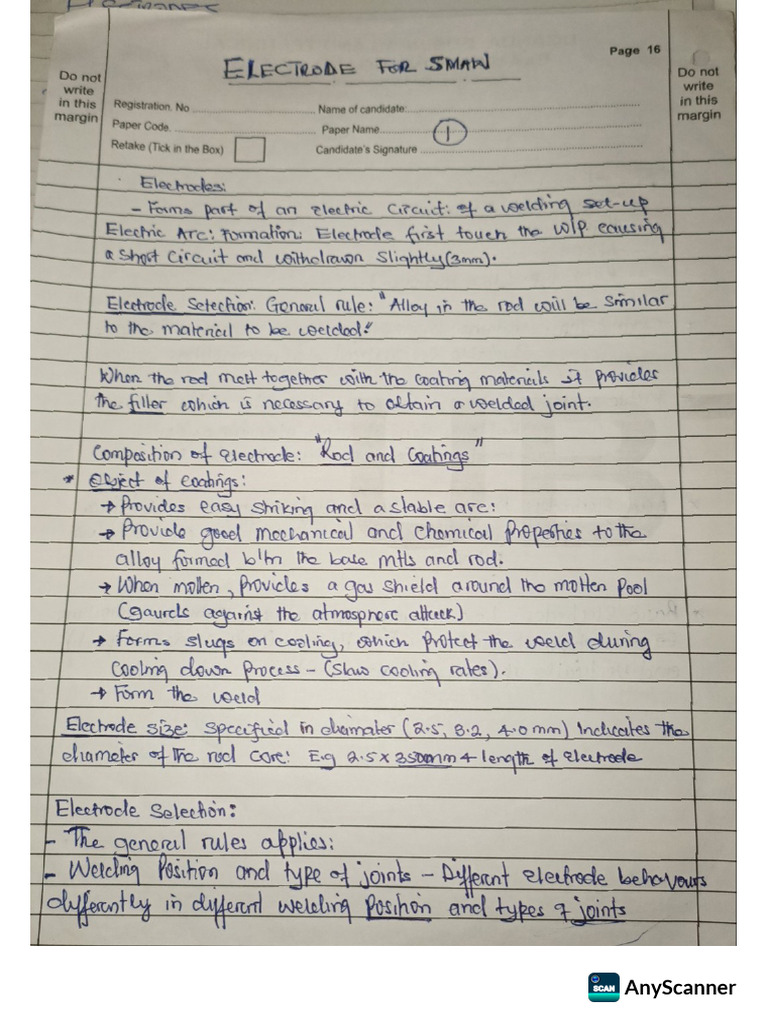 ELECTRODE FOR SMAW
Page 16
Do not
write
in this
margin
Do not
write
in this
margin
Registration. No
Name of candidate:
Paper Code.
Paper Name
1
Retake (Tick in the Box)
Candidate's Signature
Electrodes:
- Forms part of an electric circuit: of a welding set-up
Electric Arc: Formation: Electrode first touch the W/P causing
a short circuit and withdrawn slightly (3mm).
Electrode Selection: General rule: "Alloy in the rod will be similar
to the material to be welded."
When the rod melt together with the coating materials it provides
the filler which is necessary to obtain a welded joint.
Composition of electrode: "Rod and Coatings"
* Object of coatings:
→ Provides easy striking and a stable arc:
→ Provide good mechanical and chemical properties to the
alloy formed b/tn the base mtls and rod.
→ When molten, provides a gas shield around the molten pool
(gaurds against the atmosphere attack)
→ Forms slugs on cooling, which protect the weld during
cooling down process - (slow cooling rates).
→ Form the weld
Electrode size: Specified in diamater (2.5, 3.2, 4.0 mm) Indicates the
diameter of the rod core: E.g 2.5 x 350mm + length of electrode
Electrode Selection:
- The general rules applies:
- Welding Position and type of joints - Different electrode behavours
differently in different welding position and types of joints
SCAN
AnyScanner